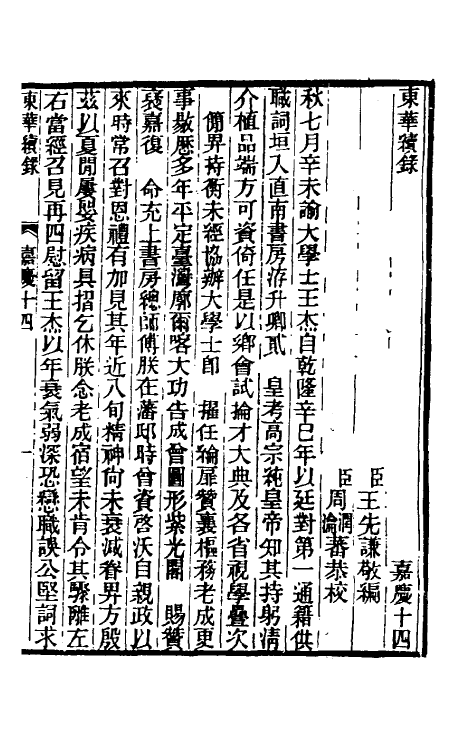 東華續錄　嘉慶十四
臣王先謙敬編
臣周潤蕃　周瀹蕃恭校
秋七月辛未諭大學士王杰自乾隆辛巳年以廷對第一通籍供
職詞垣入直南書房洊升卿貳　皇考高宗純皇帝知其持躬清
介植品端方可資倚任是以鄉會試掄才大典及各省視學疊次
簡畀持衡未經協辦大學士卽　擢任綸扉贊襄樞務老成更
事敭歷多年平定臺灣廓爾喀大功告成曾圖形紫光閣　賜贊
袞嘉復　命充上書房總師傅朕在藩邸時曾資啓沃自親政以
來時常召對恩禮有加見其年近八旬精神尚未衰減眷畀方殷
茲以夏閒屢嬰疾病具摺乞休朕念老成宿望未肯令其驟離左
右當經召見再四慰留王杰以年衰氣弱深恐戀職誤公堅詞求
東華續錄　嘉慶十四　一